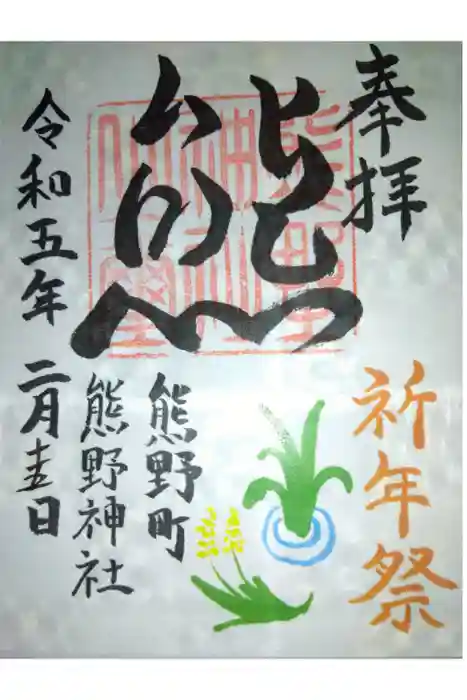 奉拝
祈年祭
熊
熊野
神社
熊野町
熊野神社
令和五年 二月十五日